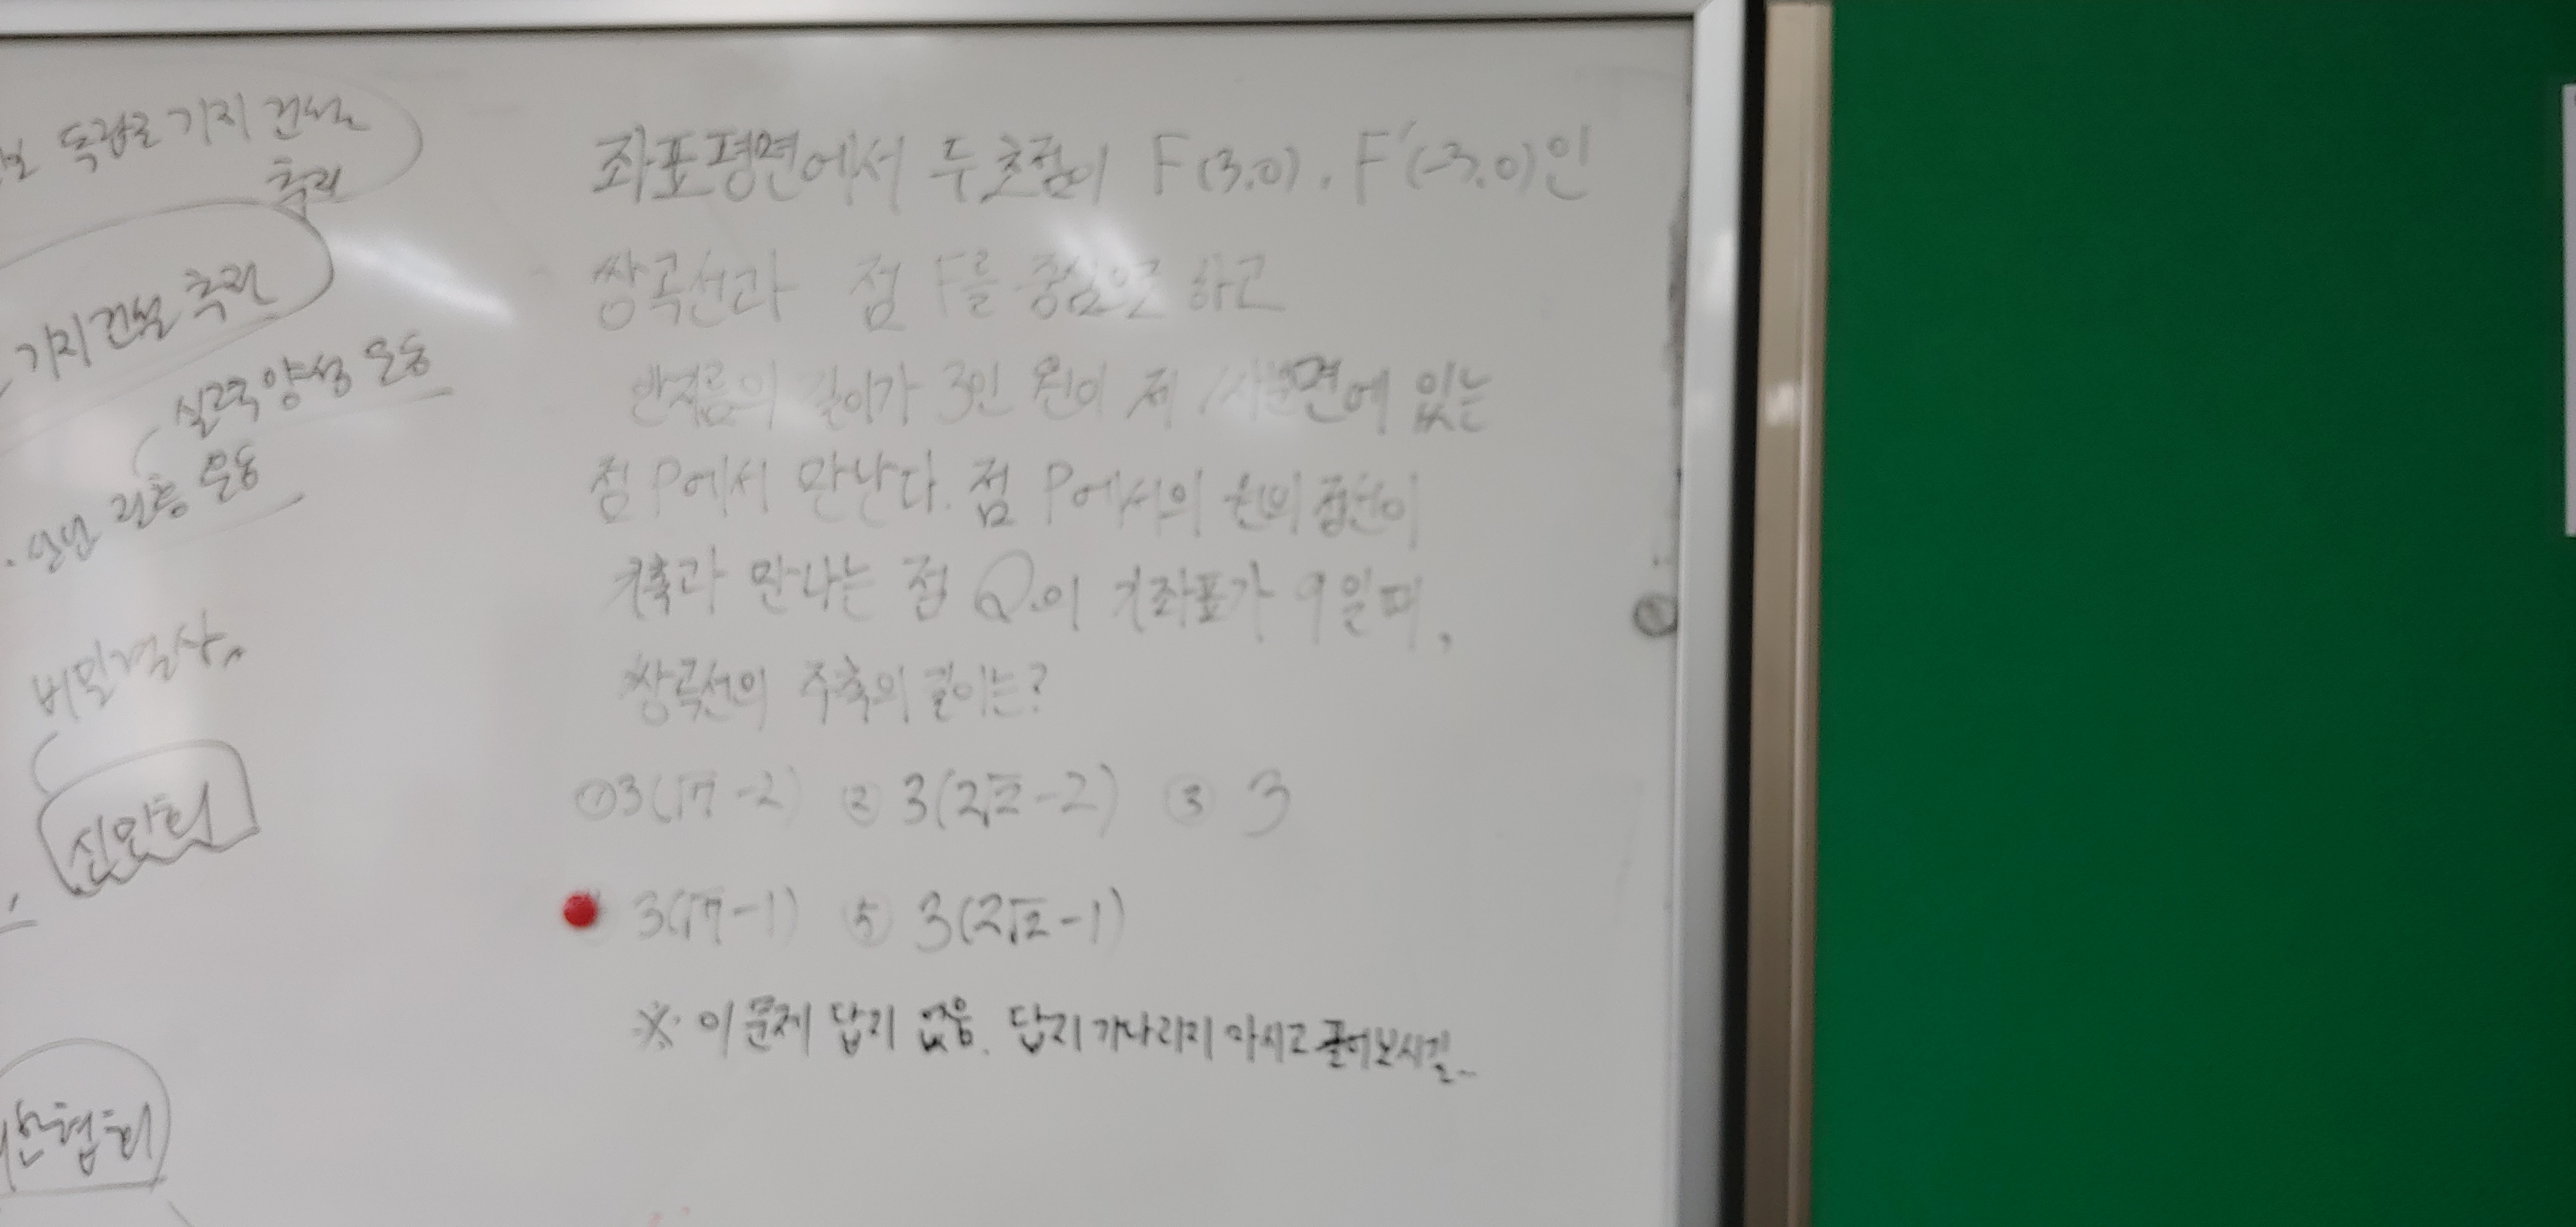 독립군 기지 건설
촉과
기지건설 촉진
실력양성 운동
운동
비밀결사
신민회
좌표평면에서 두 초점이 F(3,0), F'(-3,0)인
쌍곡선과 점 F를 중심으로 하고
반지름의 길이가 3인 원이 제 1사분면에 있는
점 P에서 만난다. 점 P에서의 원의 접선이
x축과 만나는 점 Q의 x좌표가 9일 때,
쌍곡선의 주축의 길이는?
① 3(√7-2) ② 3(2√2-2) ③ 3
3(√7-1) ⑤ 3(2√2-1)
※ 이 문제 답지 없음. 답지 기다리지 마시고 풀어보시길..
협회